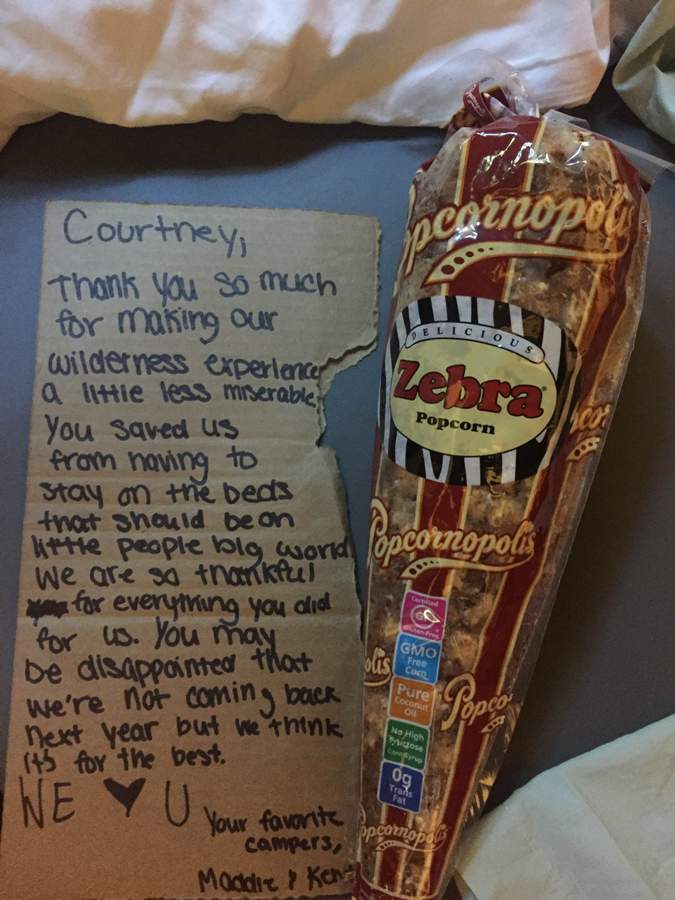 Courtney,
Thank you so much
for making our
wilderness experience
a little less miserable
You saved us
from having to
stay on the beds
that should be on
little people big world
We are so thankful
for everything you did
for us. You may
be disappointed that
we're not coming back
next year but we think
its for the best.
WE ♥ U
Your favorite
campers,
Maddie &
Popcornopolis
DELICIOUS
Zebra
Popcorn
Popcornopolis
Certified
Gluten-Free
GMO
Free
Corn
Pure
Coconut
Oil
No High
Fructose
Corn Syrup
0g
Trans
Fat
olis
Popco
opcornopolis